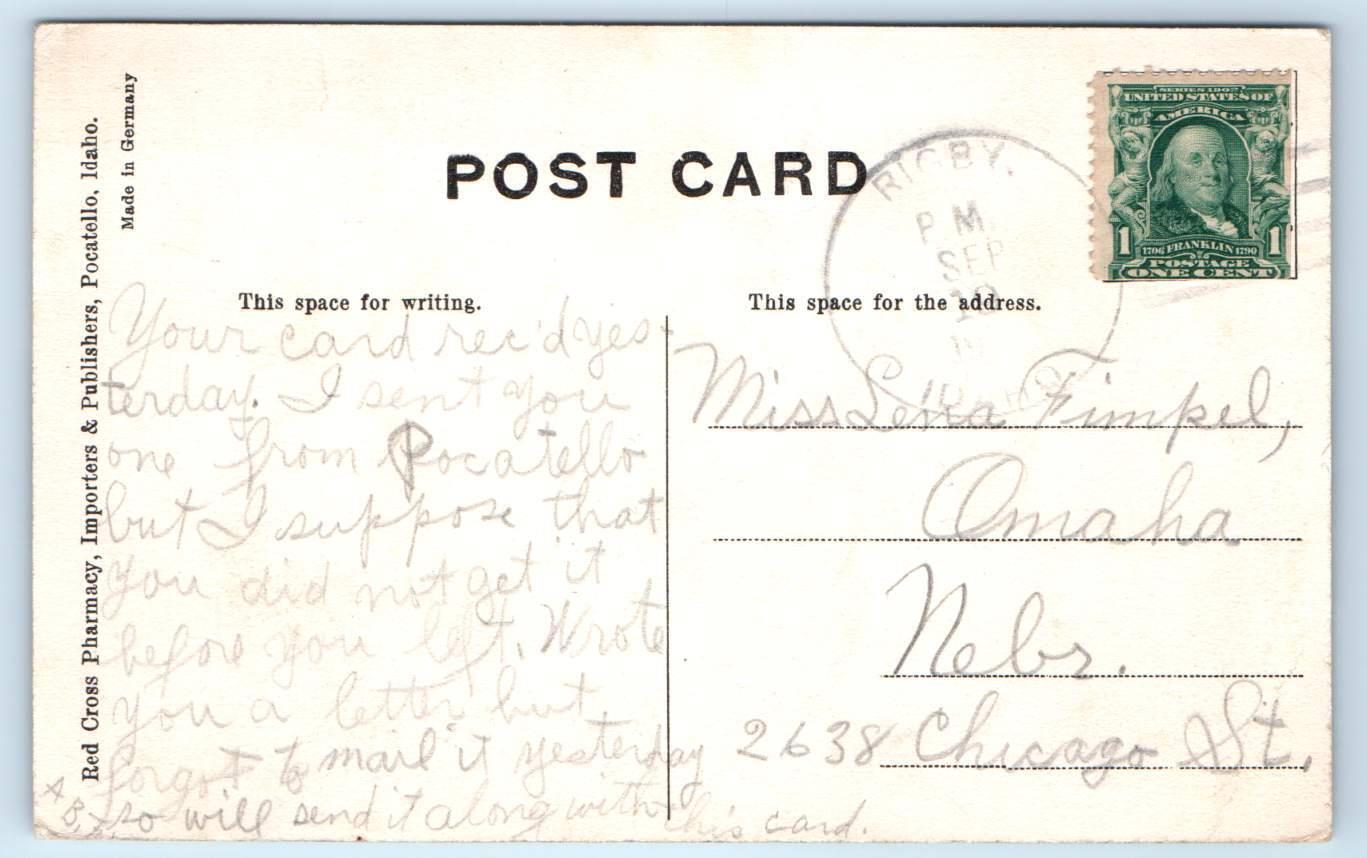 Red Cross Pharmacy, Importers & Publishers, Pocatello, Idaho.
Made in Germany
POST CARD
RIGBY,
P M.
SEP
IDAHO
SERIES 1902
UNITED STATES OF
AMERICA
1 1706 FRANKLIN 1790 1
POSTAGE
ONE CENT
This space for writing.
Your card rec'd yes-
terday. I sent you
one from Pocatello
but I suppose that
you did not get it
before you left. Wrote
you a letter but
forgot to mail it yesterday
so will send it along with this card.
This space for the address.
Miss Lena Fimpel,
Omaha
Nebr.
2638 Chicago St.